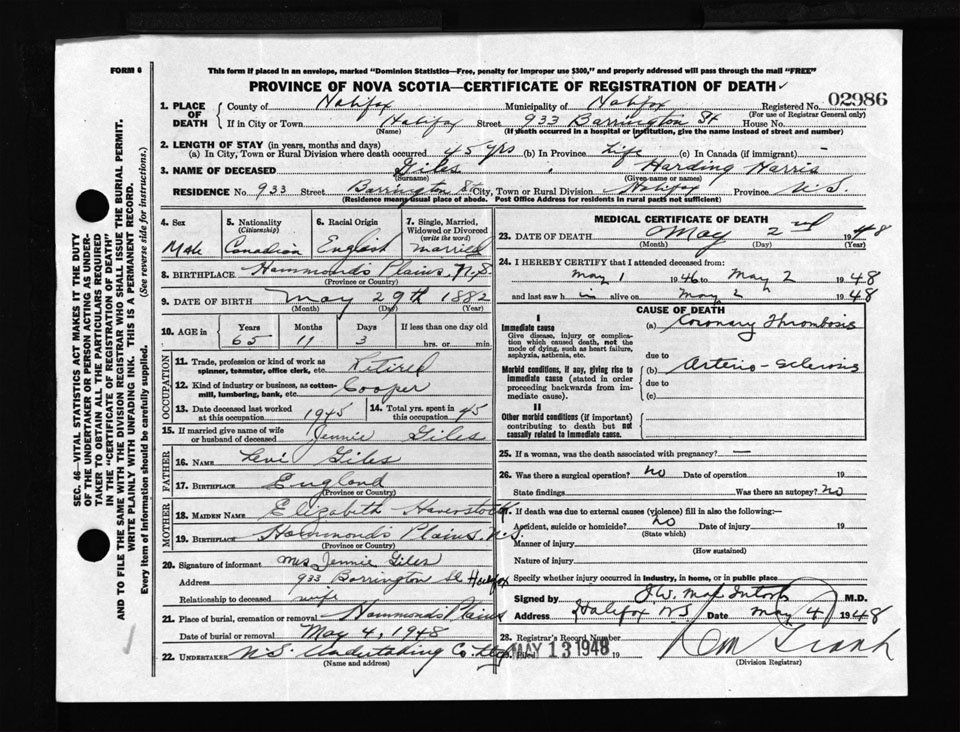 FORM 6
This form if placed in an envelope, marked "Dominion Statistics—Free, penalty for improper use $300," and properly addressed will pass through the mail "FREE"
PROVINCE OF NOVA SCOTIA—CERTIFICATE OF REGISTRATION OF DEATH
SEC. 46—VITAL STATISTICS ACT MAKES IT THE DUTY
OF THE UNDERTAKER OR PERSON ACTING AS UNDER-
TAKER TO OBTAIN ALL THE PARTICULARS REQUIRED
IN THE "CERTIFICATE OF REGISTRATION OF DEATH"
AND TO FILE THE SAME WITH THE DIVISION REGISTRAR WHO SHALL ISSUE THE BURIAL PERMIT.
WRITE PLAINLY WITH UNFADING INK. THIS IS A PERMANENT RECORD.
Every item of information should be carefully supplied. (See reverse side for instructions.)
1. PLACE OF DEATH
County of Halifax Municipality of Halifax Registered No. 02986
(For use of Registrar General only)
If in City or Town Halifax Street 933 Barrington St House No.
(Name) (If death occurred in a hospital or institution, give the name instead of street and number)
2. LENGTH OF STAY (in years, months and days)
(a) In City, Town or Rural Division where death occurred 45 yrs (b) In Province Life (c) In Canada (if immigrant) -
3. NAME OF DECEASED Giles, Harding Harris
(Surname) (Given name or names)
RESIDENCE No. 933 Street Barrington St City, Town or Rural Division Halifax Province N.S.
(Residence means usual place of abode. Post Office Address for residents in rural parts not sufficient)
4. Sex Male
5. Nationality (Citizenship) Canadian
6. Racial Origin English
7. Single, Married, Widowed or Divorced (write the word) Married
8. BIRTHPLACE Hammonds Plains, N.S
(Province or Country)
9. DATE OF BIRTH May 29th 1882
(Month) (Day) (Year)
10. AGE in Years Months Days If less than one day old
65 11 3 hrs. or min.
OCCUPATION
11. Trade, profession or kind of work as spinner, teamster, office clerk, etc. Retired
12. Kind of industry or business, as cotton-mill, lumbering, bank, etc. Cooper
13. Date deceased last worked at this occupation 1945 14. Total yrs. spent in this occupation 45
15. If married give name of wife or husband of deceased Jennie Giles
FATHER
16. NAME Levi Giles
17. BIRTHPLACE England
(Province or Country)
MOTHER
18. MAIDEN NAME Elizabeth Haverstock
19. BIRTHPLACE Hammonds Plains, N.S.
(Province or Country)
20. Signature of informant Mrs Jennie Giles
Address 933 Barrington St Halifax
Relationship to deceased wife
21. Place of burial, cremation or removal Hammonds Plains
Date of burial or removal May 4, 1948
22. UNDERTAKER N.S. Undertaking Co. Ltd
(Name and address)
MEDICAL CERTIFICATE OF DEATH
23. DATE OF DEATH May 2nd 1948
(Month) (Day) (Year)
24. I HEREBY CERTIFY that I attended deceased from:
May 1 1946 to May 2 1948
and last saw him alive on May 2 1948
CAUSE OF DEATH
I
Immediate cause
Give disease, injury or complication which caused death, not the mode of dying, such as heart failure, asphyxia, asthenia, etc.
(a) Coronary Thrombosis
due to
Morbid conditions, if any, giving rise to immediate cause (stated in order proceeding backwards from immediate cause).
(b) Arterio-sclerosis
due to
(c)
II
Other morbid conditions (if important) contributing to death but not causally related to immediate cause.
25. If a woman, was the death associated with pregnancy? —
26. Was there a surgical operation? no Date of operation 19
State findings Was there an autopsy? no
27. If death was due to external causes (violence) fill in also the following:—
Accident, suicide or homicide? no Date of injury 19
(State which)
Manner of injury
(How sustained)
Nature of injury
Specify whether injury occurred in industry, in home, or in public place
Signed by M.D.
Address Halifax N.S. Date May 4 1948
28. Registrar's Record Number
Filed MAY 13 1948 19
(Division Registrar)